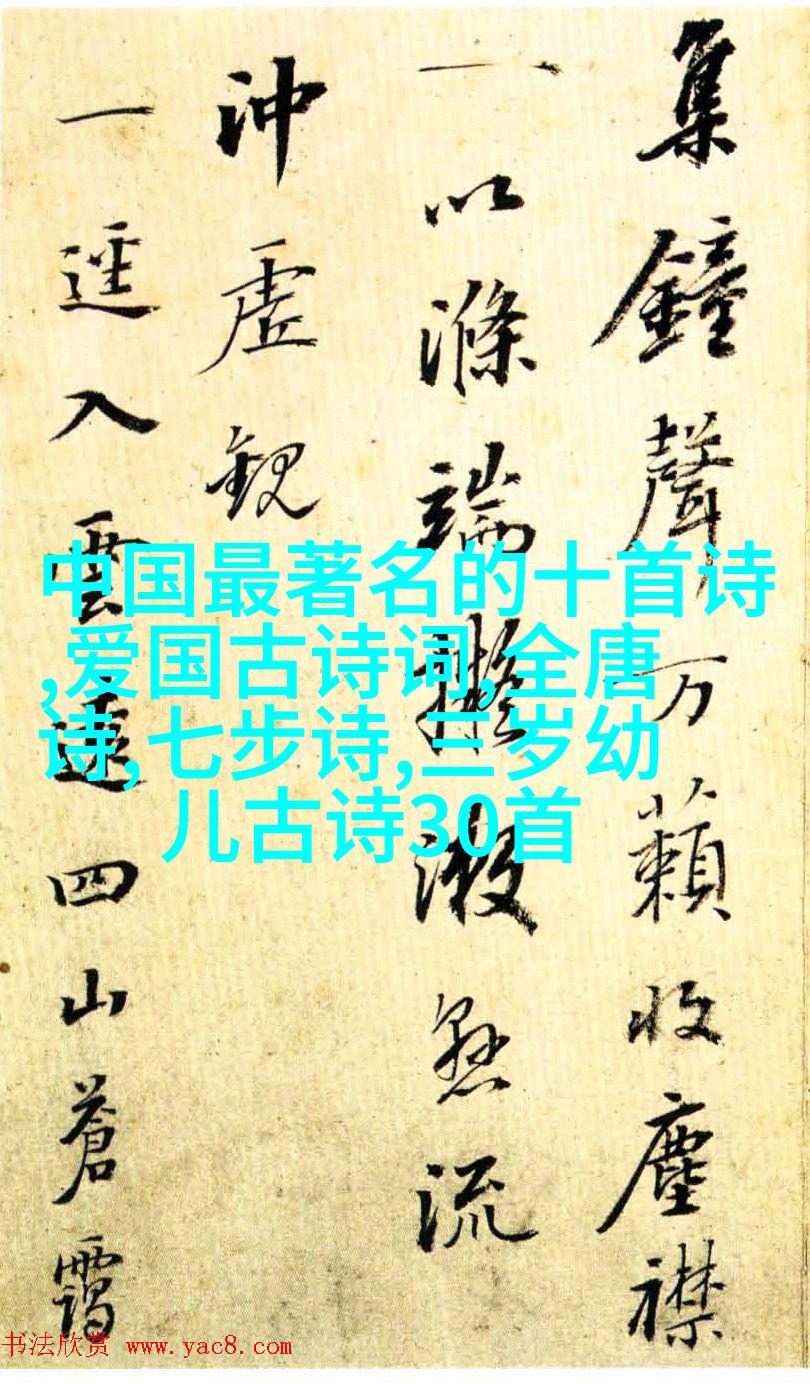 集鐘聲万藾收塵襟
一以滌端擬漱懸流
沖虛觀
一逕入雲遠四山蒼靄
中国最著名的十首诗
,爱国古诗词,全唐
诗,七步诗,三岁幼
儿古诗30首
书法欣赏 www.yac8.com